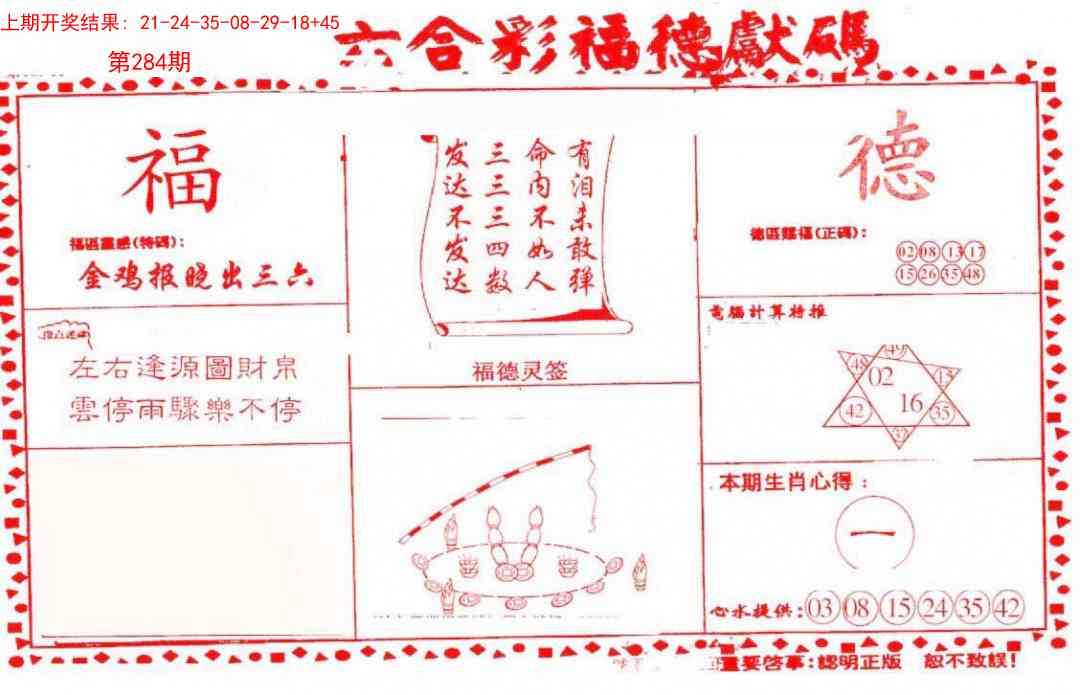 上期开奖结果：21-24-35-08-29-18+45
第284期
六合彩福德獻碼
福
福區靈感(特碼)：
金鸡报晓出三六
左右逢源圖財帛
雲停雨驟樂不停
有泪未敢弹
命内不如人
三三三四数
发达不发达
福德灵签
德
德區賜福(正碼)：
02 08 13 17
15 26 35 48
電腦計算特推
49
48 02 15
16
42 35
本期生肖心得：
一
心水提供：03 08 15 24 35 42
重要啓事：認明正版 恕不致誤！